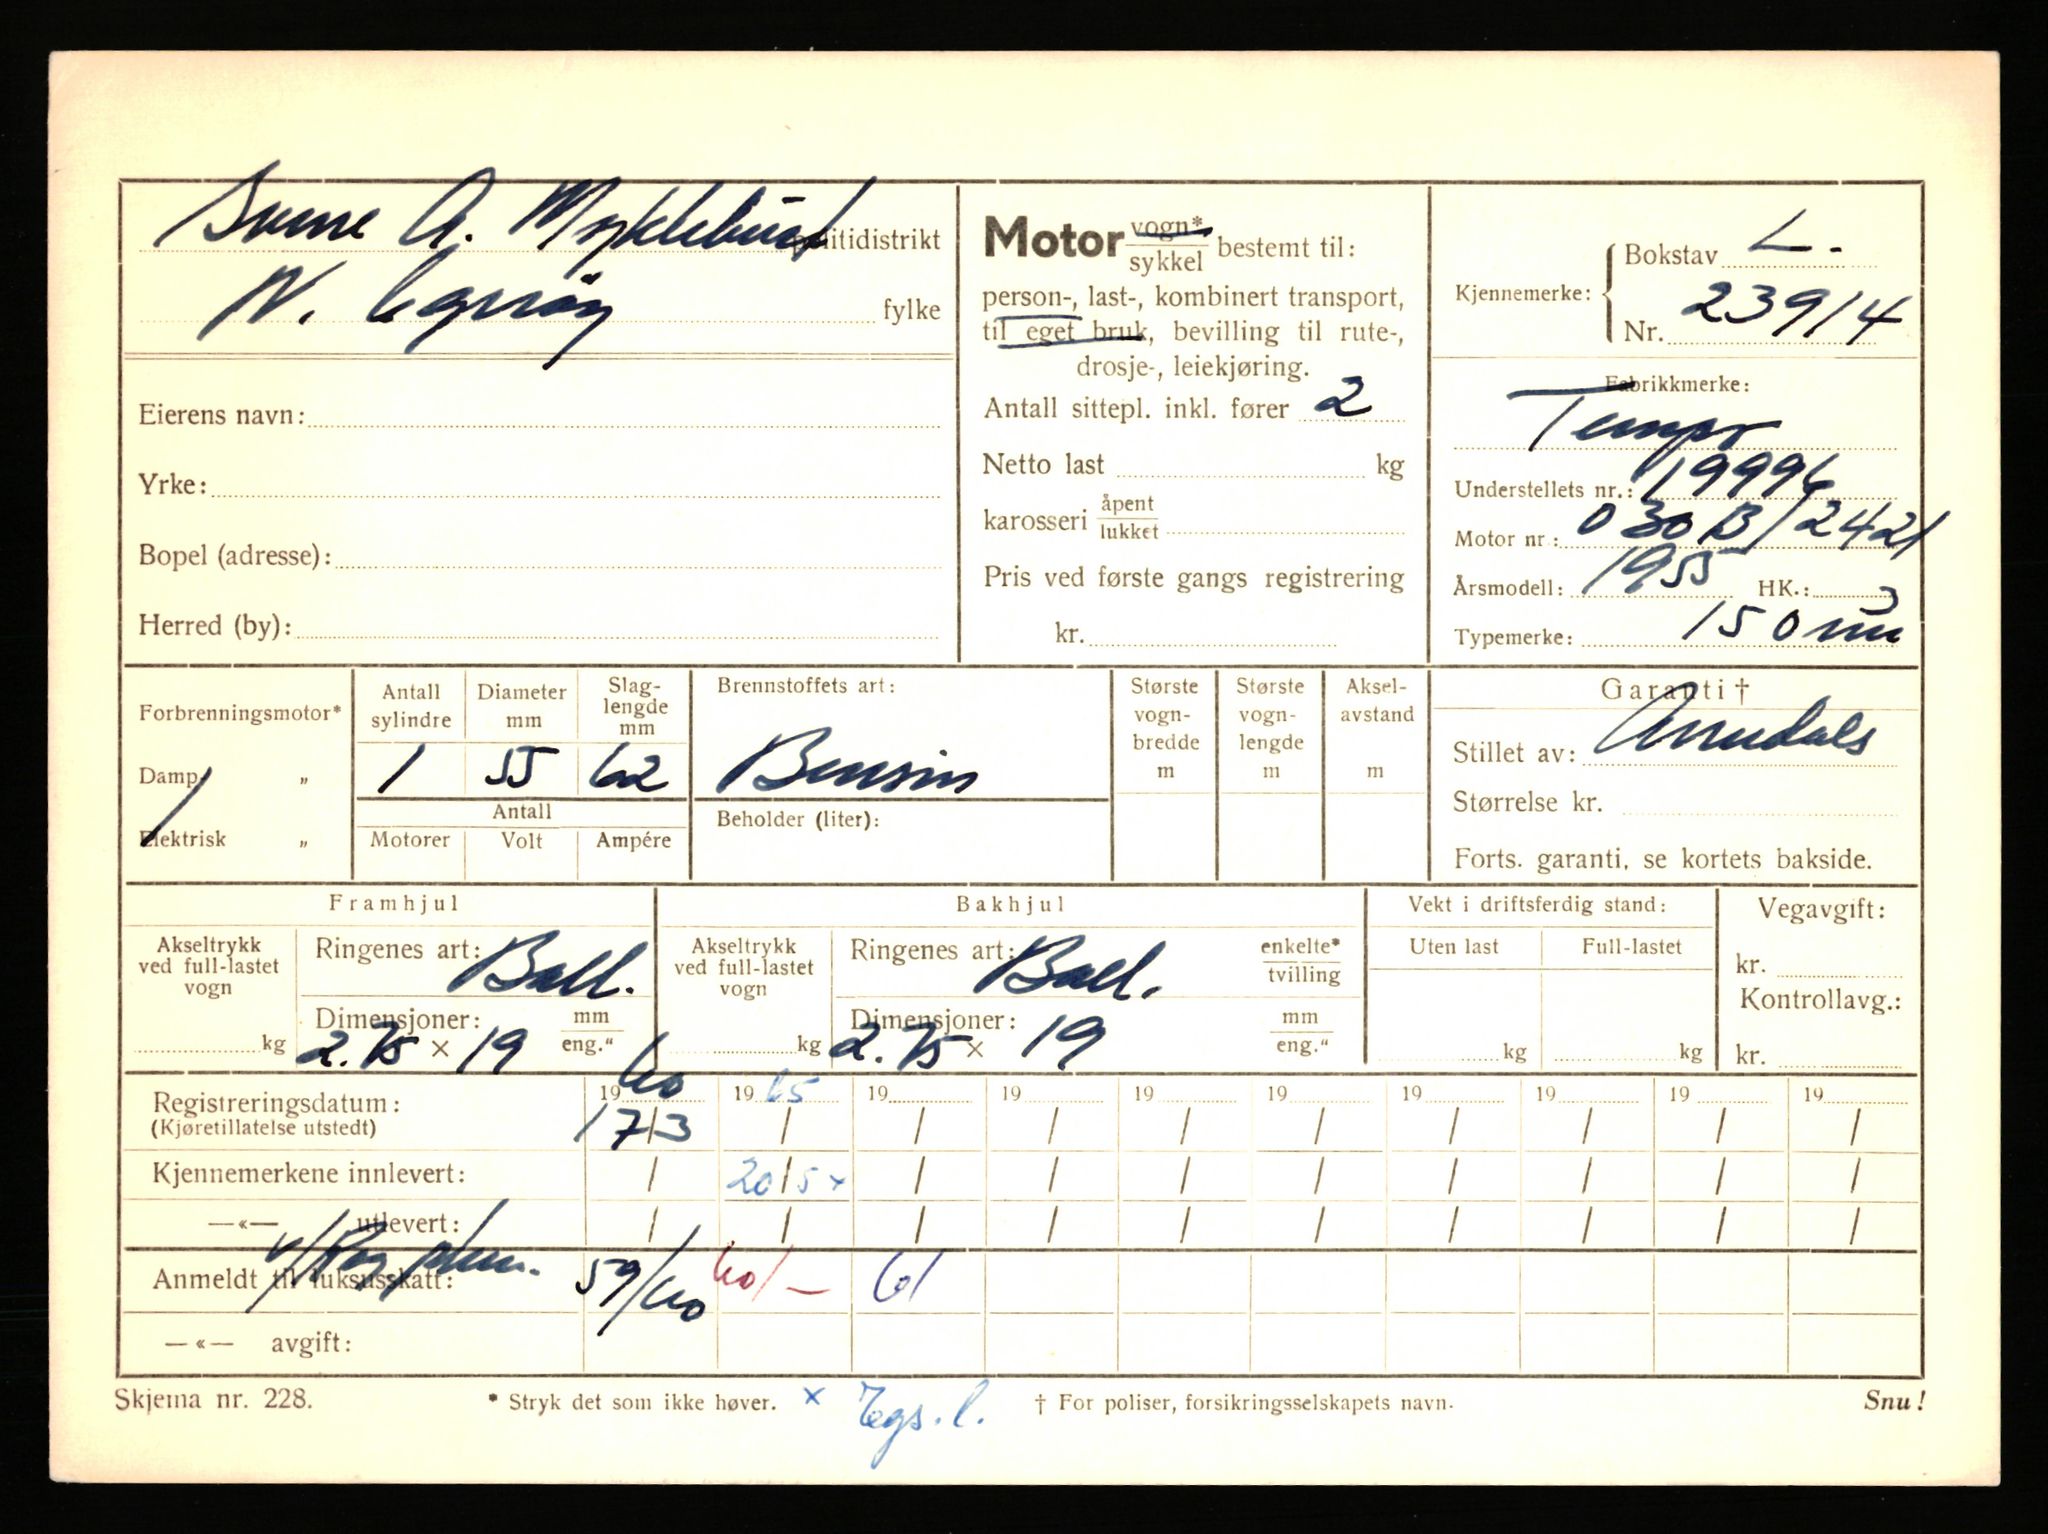 Sverre A. Myklebust politidistrikt
N. Egerøy fylke
Eierens navn:
Yrke:
Bopel (adresse):
Herred (by):
Motor vogn* sykkel bestemt til:
person-, last-, kombinert transport,
til eget bruk, bevilling til rute-,
drosje-, leiekjøring.
Antall sittepl. inkl. fører 2
Netto last kg
karosseri åpent lukket
Pris ved første gangs registrering
kr.
Kjennemerke: Bokstav L.
Nr. 23914
Fabrikkmerke:
Tempo
Understellets nr.: 19996
Motor nr.: 030 B/2421
Årsmodell: 1955 HK.:
Typemerke: 150
Forbrenningsmotor*
Damp- „
Elektrisk „
Antall sylindre
Diameter mm
Slag-lengde mm
1 55 62
Antall
Motorer Volt Ampére
Brennstoffets art:
Bensin
Beholder (liter):
Største vogn-bredde m
Største vogn-lengde m
Aksel-avstand m
Garanti †
Stillet av: Arendals
Størrelse kr.
Forts. garanti, se kortets bakside.
Framhjul
Akseltrykk ved full-lastet vogn kg
Ringenes art: Ball.
Dimensjoner: mm eng."
2.75 × 19
Bakhjul
Akseltrykk ved full-lastet vogn kg
Ringenes art: Ball. enkelte* tvilling
Dimensjoner: mm eng."
2.75 × 19
Vekt i driftsferdig stand:
Uten last Full-lastet
kg kg
Vegavgift:
kr.
Kontrollavg.:
kr.
Registreringsdatum: 1960 1965 19 19 19 19 19 19 19 19
(Kjøretillatelse utstedt) 17/3 / / / / / / / / /
Kjennemerkene innlevert: / 20/5 × / / / / / / / /
—«— utlevert: / / / / / / / / / /
Anmeldt til luksusskatt: 59/60 60/– 61
—«— avgift:
Skjema nr. 228. * Stryk det som ikke høver. × † For poliser, forsikringsselskapets navn. Snu!